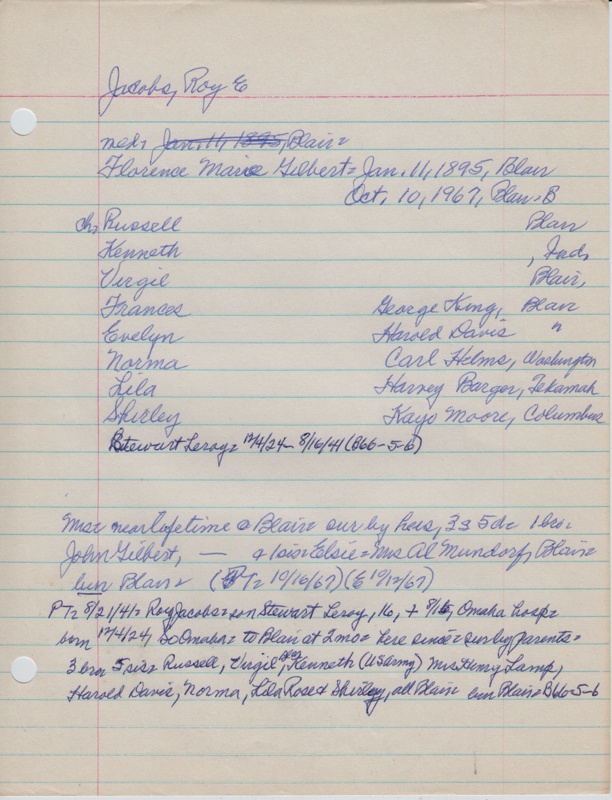 Jacobs, Roy E
med: Jan. 11, 1895, Blair=
Florence Marie Gilbert= Jan. 11, 1895, Blair
Oct. 10, 1967, Blair=B
ch: Russell Blair
Kenneth , Ind,
Virgil Blair,
Frances George King, Blair
Evelyn Harold Davis "
Norma Carl Helms, Washington
Lila Harvey Barger, Tekamah
Shirley Kayo Moore, Columbus
Stewart Leroy= 12/4/24 - 8/16/41 (B66-5-6)
Mrs= near lifetime @ Blair= sur by hus, 3s 5d= 1 bro=
John Gilbert, — + 1 sis= Elsie= Mrs Al Mundorf, Blair=
bur Blair= (PT= 10/16/67) (E 10/12/67)
PT= 8/21/41= Roy Jacobs= son Stewart Leroy, 16, + 8/16, Omaha hosp=
born 12/4/24, So Omaha= to Blair at 2 mo= here since= sur by parents=
3 bro 5 sis= Russell, Virgil, Kenneth (US army) Mrs Henry Lamp,
Harold Davis, Norma, Lila Rose & Shirley, all Blair bur Blair= B66-5-6